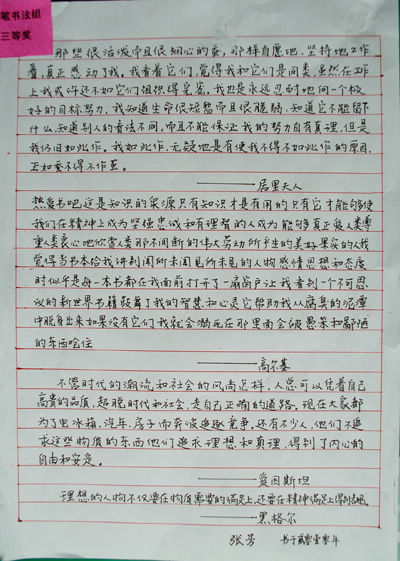 笔书法组
三等奖
那些很活泼而且很细心的蚕，那样自愿地，坚持地工作
着，真正感动了我，我看着它们，觉得我和它们是同类，虽然在工作
上我或许还不如它们组织得完善，我也是永远忍耐地向一个极
好的目标努力，我知道生命很短暂而且很脆弱，知道它不能留下
什么，知道别人的看法不同，而且不能保证我的努力自有真理，但是
我仍旧如此作。我如此作，无疑地是有使我不得不如此作的原因，
正如蚕不得不作茧。
——居里夫人
热爱书吧这是知识的泉源只有知识才是有用的只有它才能够使
我们在精神上成为坚强忠诚和有理智的人成为能够真正爱人类尊
重人类良心地欣赏人类那不间断的伟大劳动所产生的美好果实的人我
觉得当书本给我讲到闻所未闻见所未见的人物感情思想和态度
时似乎是每一本书都在我面前打开了一扇窗户让我看到一个不可思
议的新世界书籍鼓舞了我的智慧和心灵它帮助我从腐臭的泥潭
中脱身出来如果没有它们我就会溺死在那里面会被愚笨和鄙陋
的东西呛住
——高尔基
不管时代的潮流和社会的风尚怎样，人总可以凭着自己
高贵的品质，超脱时代和社会，走自己正确的道路。现在大家都
为了电冰箱，汽车，房子而奔波追逐竞争，还有不少人，他们不追
求这些物质的东西他们追求理想和真理，得到了内心的
自由和安定。
——爱因斯坦
理想的人物不仅要在物质需要的满足上，还要在精神满足上得到表现。
——黑格尔
张芳 书于贰零壹零年